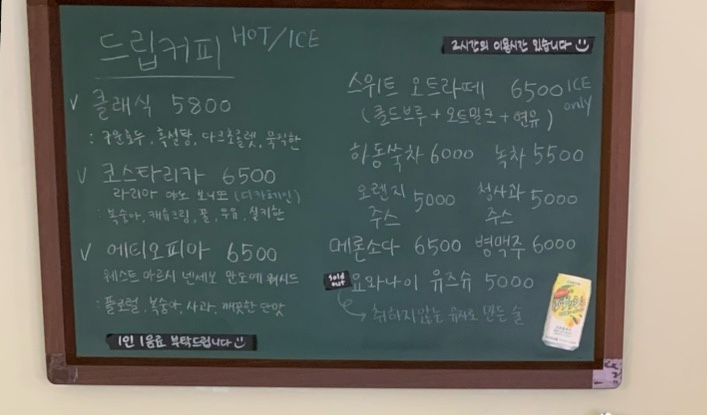 드립커피 HOT/ICE
✓ 클래식 5800
: 구운호두, 흑설탕, 다크초콜렛, 묵직한
✓ 코스타리카 6500
라리아 아노 보니또 (디카페인)
: 복숭아, 캐슈크림, 꿀, 우유, 실키한
✓ 에티오피아 6500
웨스트 아르시 넨세보 안도에 워시드
: 플로럴, 복숭아, 사과, 깨끗한 단맛
1인 1음료 부탁드립니다
2시간의 이용시간 있습니다
스위트 오트라떼 6500 ICE only
(콜드브루 + 오트밀크 + 연유)
하동쑥차 6000 녹차 5500
오렌지 주스 5000 청사과 주스 5000
메론소다 6500 병맥주 6000
sold out 요와나이 유즈슈 5000
취하지않는 유자로 만든 술